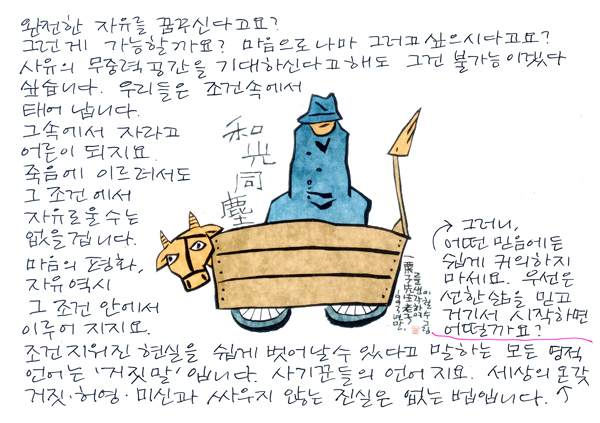 완전한 자유를 꿈꾸신다고요?
그런게 가능할까요? 마음으로나마 그러고 싶으시다고요?
사유의 무중력 공간을 기대하신다고 해도 그건 불가능이겠다
싶습니다. 우리들은 조건속에서
태어 납니다.
그속에서 자라고
어른이 되지요.
죽음에 이르러서도
그 조건에서
자유로울수는
없을겁니다.
마음의 평화,
자유역시
그 조건 안에서
이루어 지지요.
조건지워진 현실을 쉽게 벗어날수 있다고 말하는 모든 영적
언어는 '거짓말' 입니다. 사기꾼들의 언어지요. 세상의 온갖
거짓·허영·미신과 싸우지 않는 진실은 없는 법입니다.
그러니,
어떤 믿음에든
쉽게 귀의하지
마세요. 우선은
선한삶을 믿고
거기서 시작하면
어떨까요?
和光同塵
一粟子先生老子
를 생각하며
이철수 그림